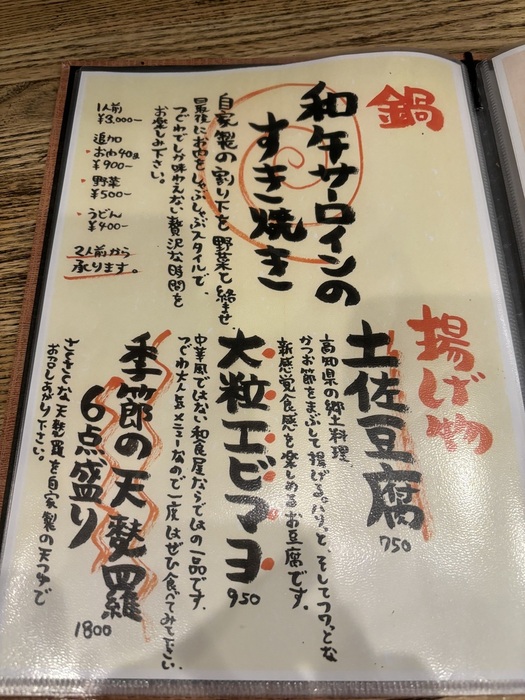 鍋
和牛サーロインの
すき焼き
自家製の割り下を野菜と絡ませ、
最後にお肉をしゃぶしゃぶスタイルで、
つくねでしか味わえない贅沢な時間を
お楽しみ下さい。
1人前
¥3,000-
追加
・お肉40g
¥900-
・野菜
¥500-
・うどん
¥400-
2人前から
承ります。
揚げ物
土佐豆腐
750
高知県の郷土料理、
かつお節をまぶして揚げる。パリッと、そしてフワッとな
新感覚食感を楽しめるお豆腐です。
大粒エビマヨ
950
中華風ではない和食屋ならではの一品です。
つくね大人気メニューなので一度はぜひ食べてみて下さい。
季節の天麩羅
6点盛り
1800
さくさくな天麩羅を自家製の天つゆで
お召しあがり下さい。